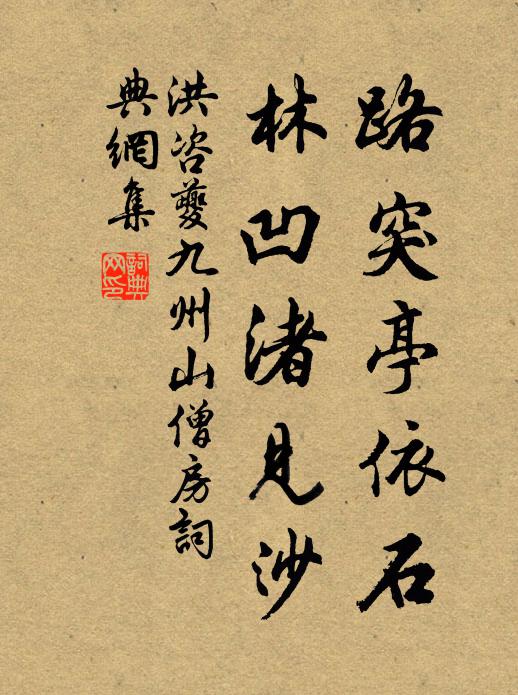 路突亭依石
林凹渚見沙
洪咨夔九州山僧房詞
典網集
詞典網印